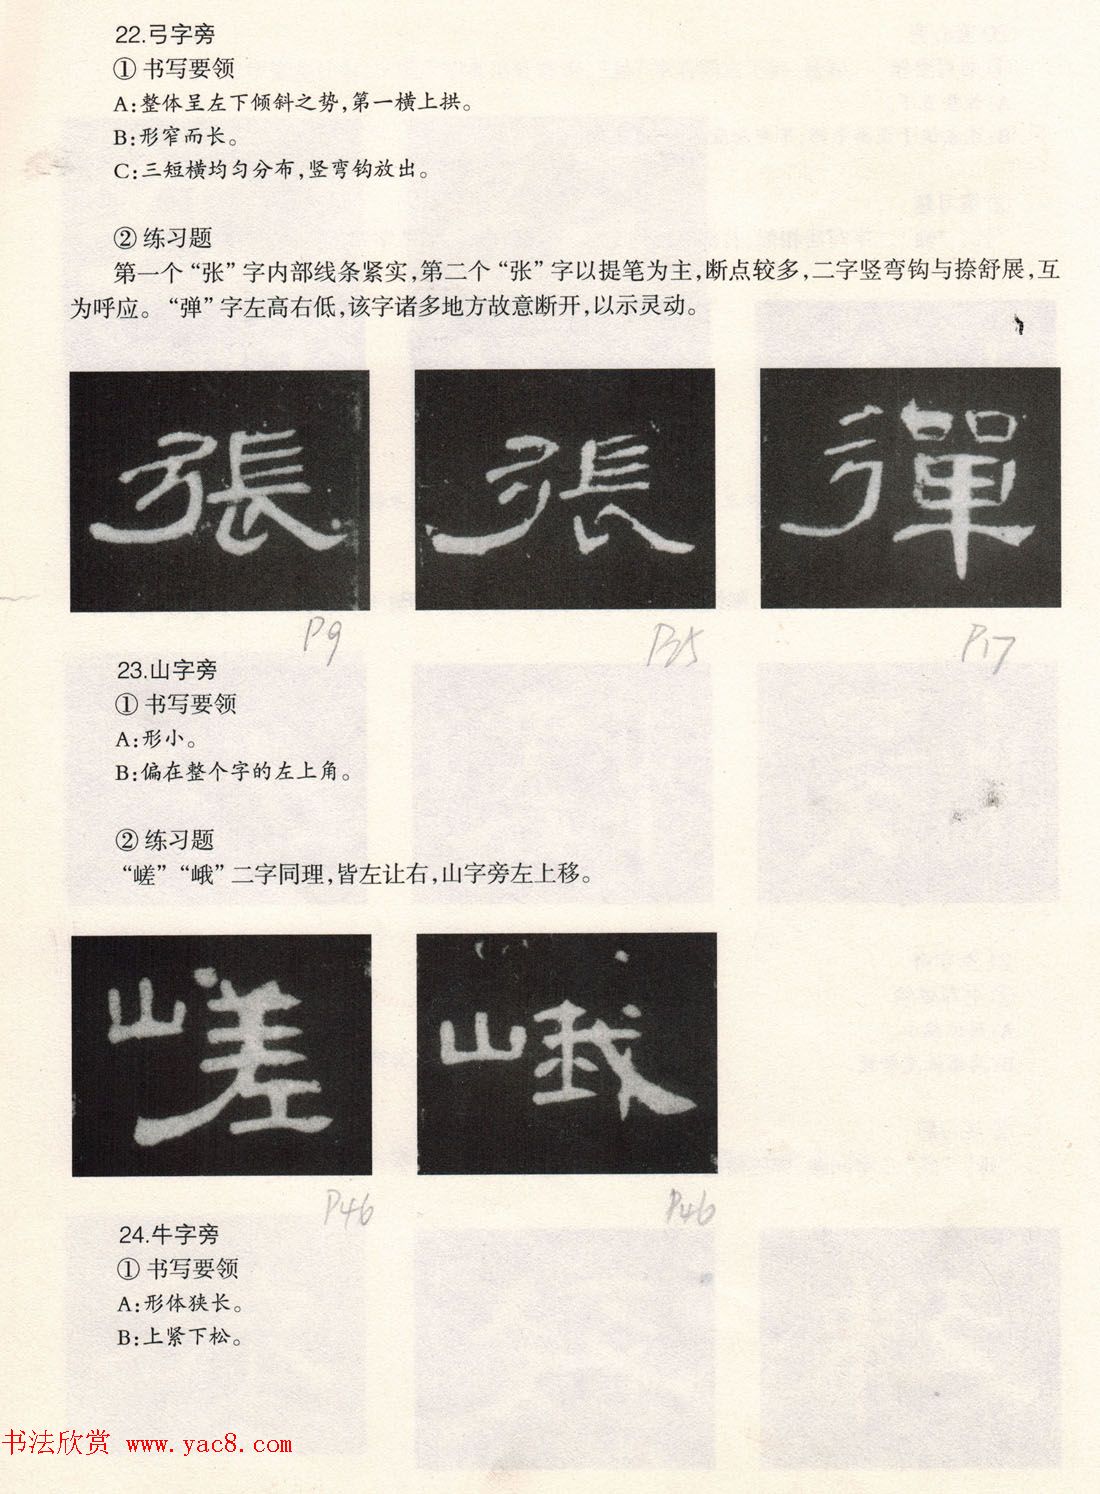 22.弓字旁
① 书写要领
A:整体呈左下倾斜之势,第一横上拱。
B:形窄而长。
C:三短横均匀分布,竖弯钩放出。
② 练习题
第一个“张”字内部线条紧实,第二个“张”字以提笔为主,断点较多,二字竖弯钩与捺舒展,互
为呼应。“弹”字左高右低,该字诸多地方故意断开,以示灵动。
張 張 彈
P9 P35 P17
23.山字旁
① 书写要领
A:形小。
B:偏在整个字的左上角。
② 练习题
“嵯”“峨”二字同理,皆左让右,山字旁左上移。
嵯 峨
P46 P46
24.牛字旁
① 书写要领
A:形体狭长。
B:上紧下松。
书法欣赏 www.yac8.com